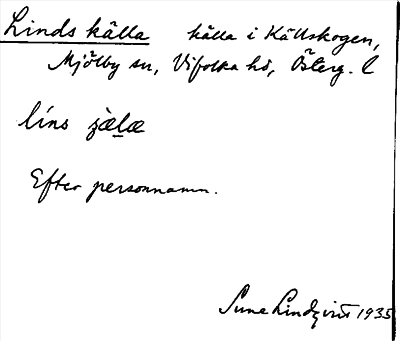 Linds källa källa i Källskogen,
Mjölby sn, Vifolka hd, Österg. l
líns
Efter personnamn.
Sune Lindqvist 1935